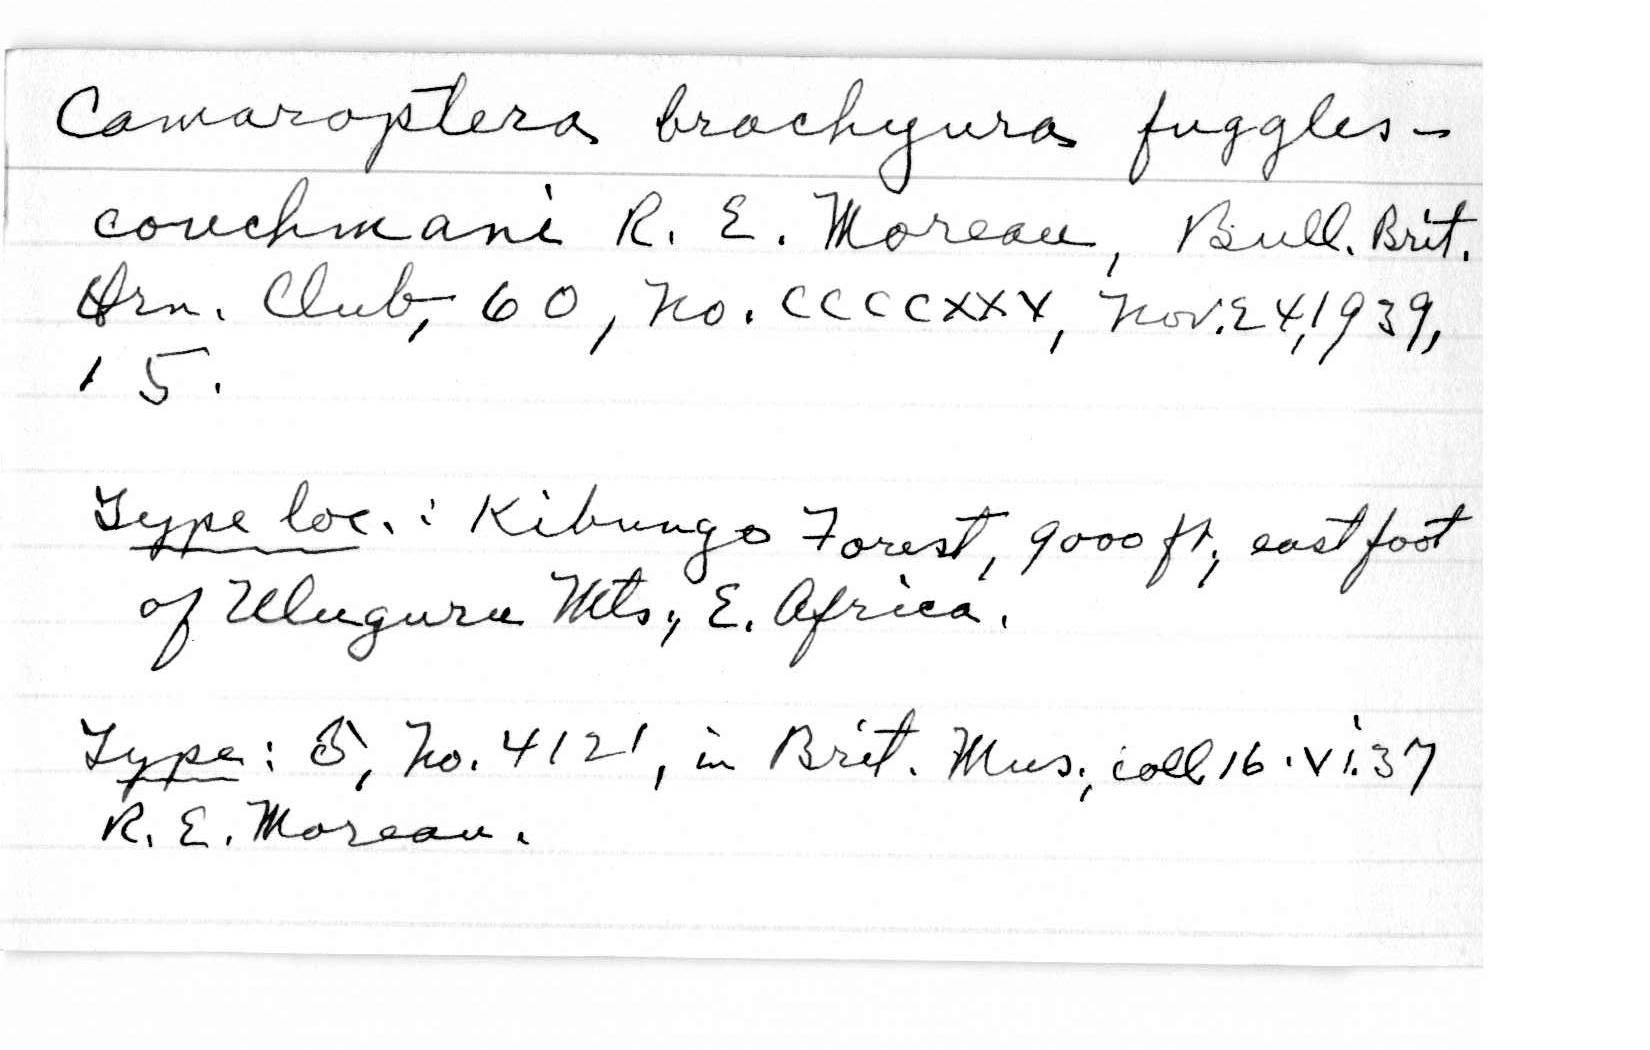 Camaroptera brachyura fuggles-
couchmani R. E. Moreau, Bull. Brit.
Orn. Club, 60, No. CCCCXXV, Nov. 24, 1939,
15.
Type loc.: Kibungo Forest, 9000 ft, east foot
of Uluguru Mts., E. Africa.
Type: ♂, No. 4121, in Brit. Mus., coll 16.vi.37
R. E. Moreau.